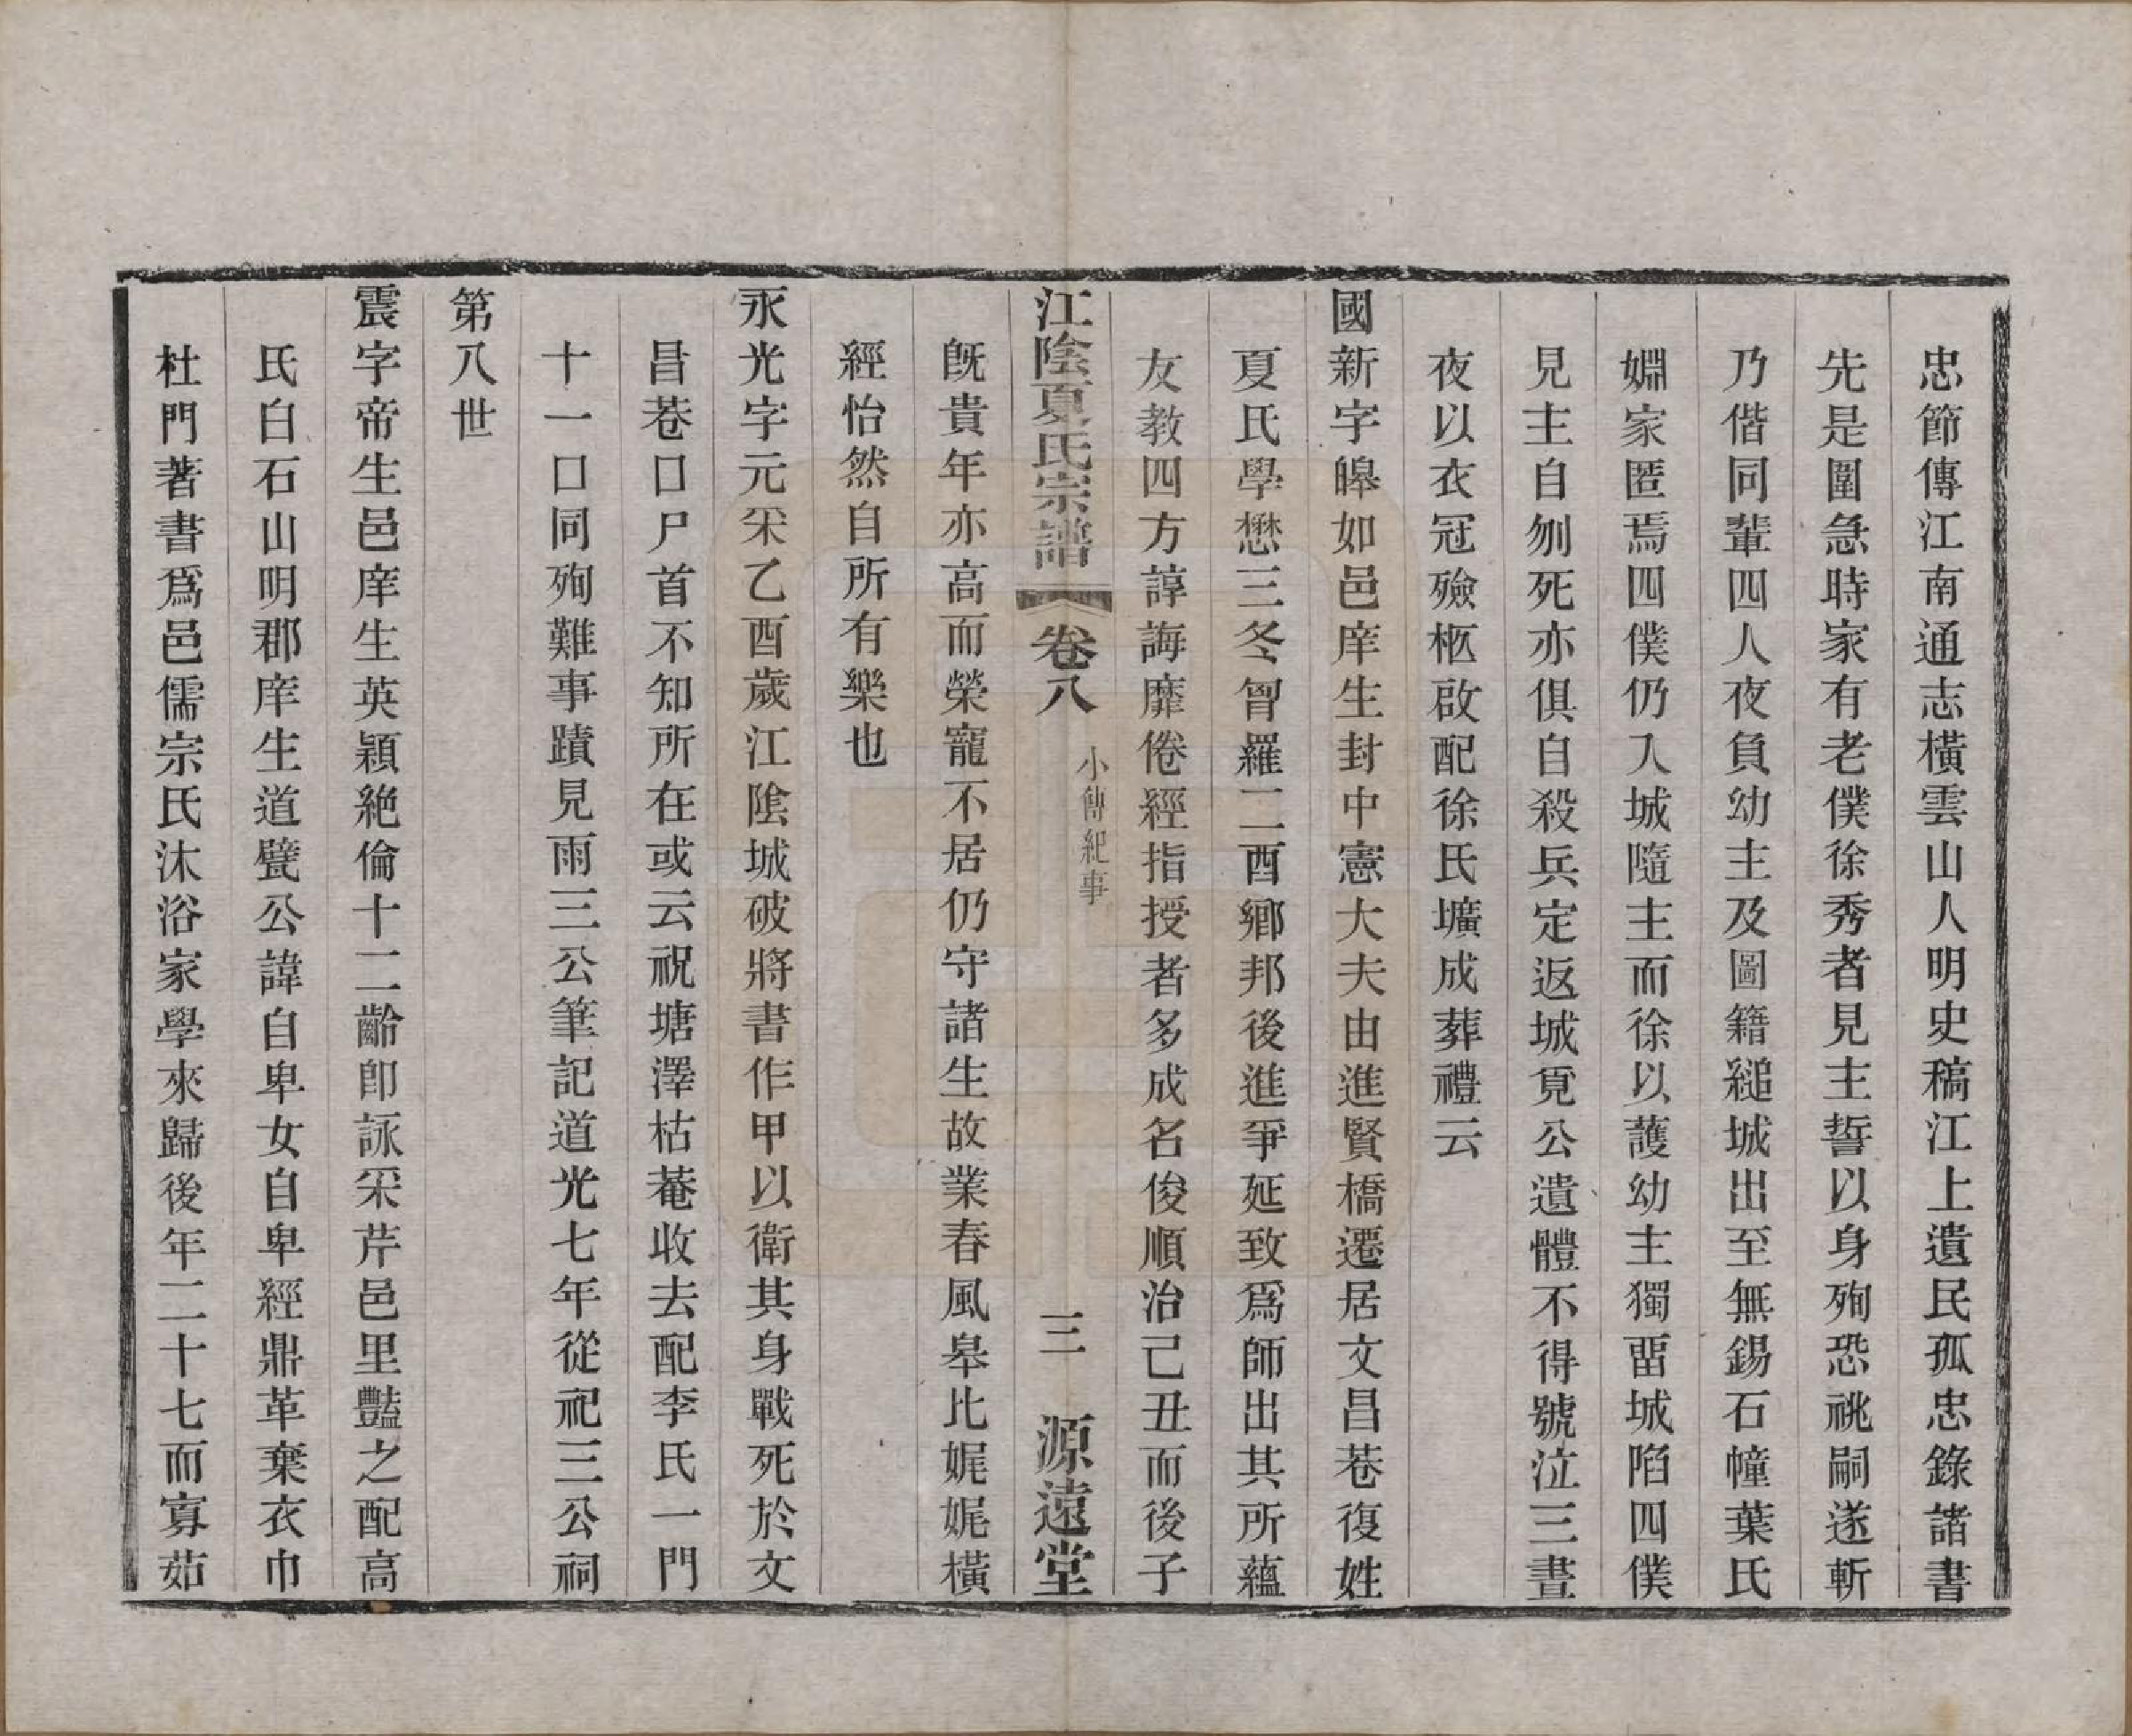 忠節傳江南通志橫雲山人明史稿江上遺民孤忠錄諸書
先是圍急時家有老僕徐秀者見主誓以身殉恐祧嗣遂斬
乃偕同輩四人夜負幼主及圖籍縋城出至無錫石幢葉氏
姻家匿焉四僕仍入城隨主而徐以護幼主獨畱城陷四僕
見主自刎死亦俱自殺兵定返城覓公遺體不得號泣三晝
夜以衣冠殮柩啟配徐氏壙成葬禮云
國新字皞如邑庠生封中憲大夫由進賢橋遷居文昌巷復姓
夏氏學懋三冬曾羅二酉鄉邦後進爭延致爲師出其所蘊
友教四方諄誨靡倦經指授者多成名俊順治己丑而後子
江陰夏氏宗譜 卷八 小傳紀事 三 源遠堂
旣貴年亦高而榮寵不居仍守諸生故業春風皋比娓娓橫
經怡然自所有樂也
永光字元宷乙酉歲江陰城破將書作甲以衛其身戰死於文
昌巷口尸首不知所在或云祝塘澤枯菴收去配李氏一門
十一口同殉難事蹟見雨三公筆記道光七年從祀三公祠
第八世
震字帝生邑庠生英穎絶倫十二齡卽詠宷芹邑里豔之配高
氏白石山明郡庠生道甓公諱自卑女自卑經鼎革棄衣巾
杜門著書爲邑儒宗氏沐浴家學來歸後年二十七而寡茹